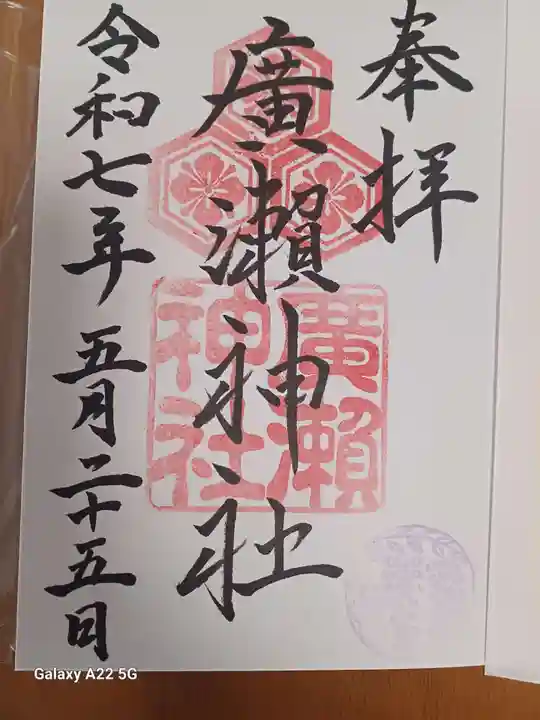 奉拝
廣瀬神社
廣瀬
神社
令和七年五月二十五日
Galaxy A22 5G